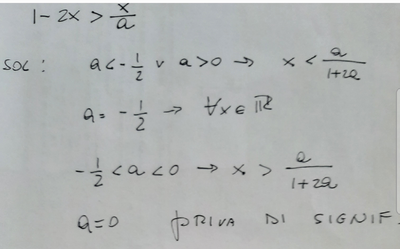 1-2x > x/a
SOL: a < -1/2 ∨ a > 0 → x < a/(1+2a)
a = -1/2 → ∀x ∈ ℝ
-1/2 < a < 0 → x > a/(1+2a)
a = 0 PRIVA DI SIGNIF.